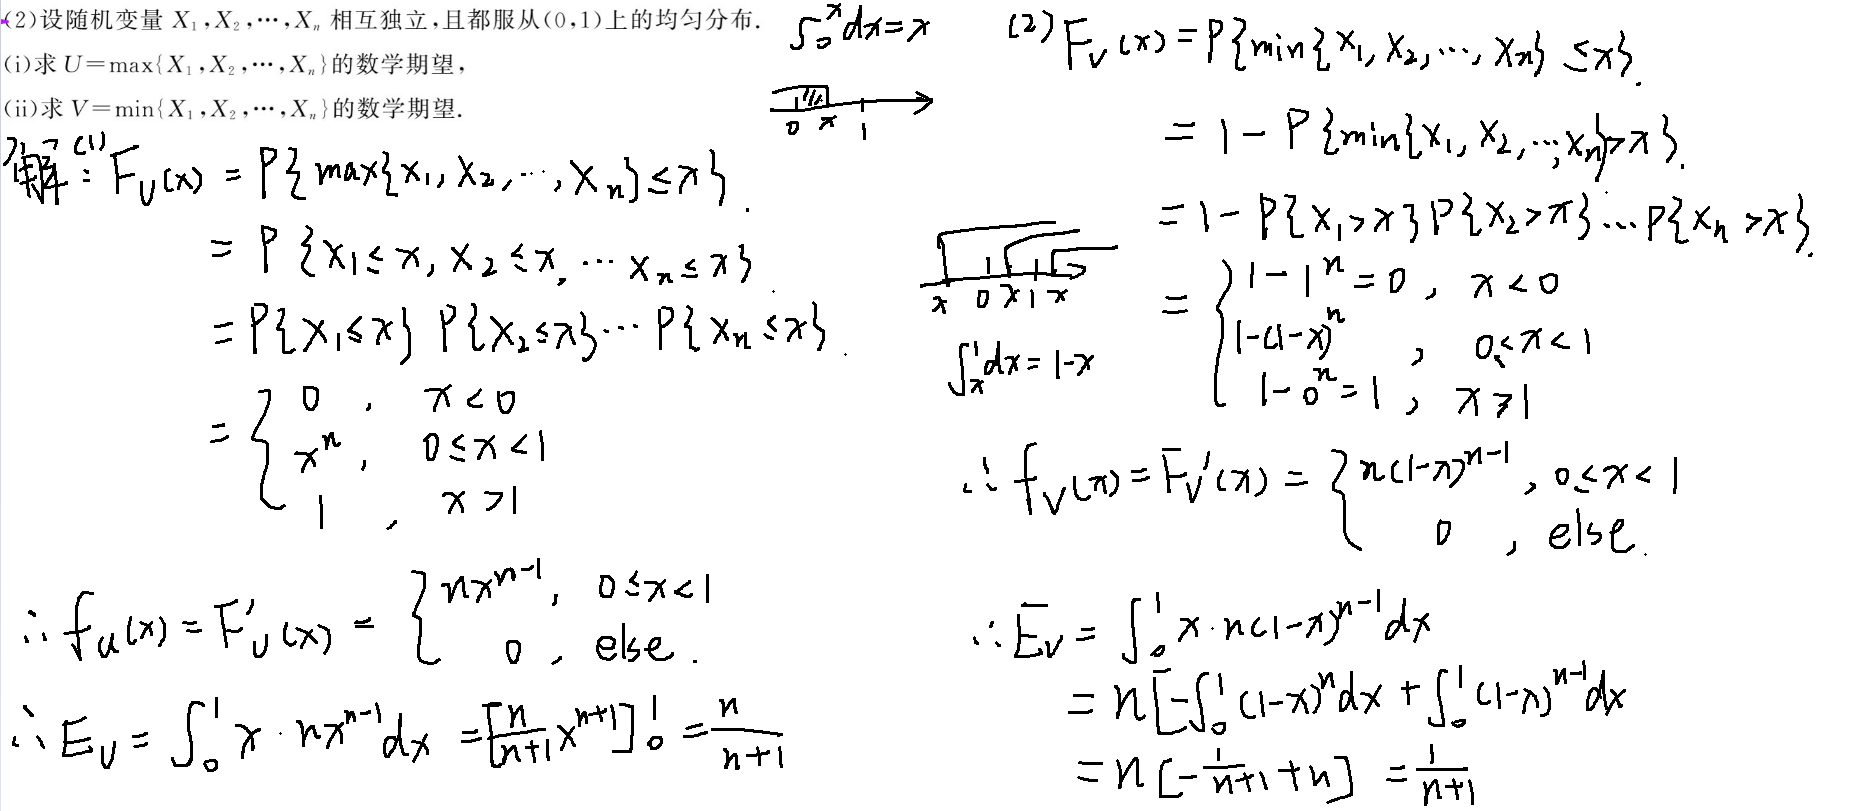 (2)设随机变量 X₁,X₂,⋯,Xₙ 相互独立,且都服从(0,1)上的均匀分布.
(i)求 U=max{X₁,X₂,⋯,Xₙ}的数学期望,
(ii)求 V=min{X₁,X₂,⋯,Xₙ}的数学期望.
解: (1) F_U(x) = P{max{x₁, x₂, ⋯, xₙ} ≤ x}.
= P{x₁ ≤ x, x₂ ≤ x, ⋯ xₙ ≤ x}.
= P{x₁ ≤ x} P{x₂ ≤ x} ⋯ P{xₙ ≤ x}.
= { 0 , x < 0
xⁿ , 0 ≤ x < 1
1 , x > 1
∴ f_u(x) = F'_U(x) = { nxⁿ⁻¹, 0 ≤ x < 1
0 , else.
∴ E_U = ∫₀¹ x · nxⁿ⁻¹ dx = [n/(n+1) xⁿ⁺¹]₀¹ = n/(n+1)
∫₀ˣ dx = x
0 x 1
(2) F_V(x) = P{min{x₁, x₂, ⋯, xₙ} ≤ x}.
= 1 - P{min{x₁, x₂, ⋯, xₙ} > x}.
= 1 - P{x₁ > x} P{x₂ > x} ⋯ P{xₙ > x}.
x 0 x 1 x
∫ₓ¹ dx = 1-x
= { 1 - 1ⁿ = 0 , x < 0
1-(1-x)ⁿ , 0 ≤ x < 1
1 - 0ⁿ = 1 , x ≥ 1
∴ f_V(x) = F_V'(x) = { n(1-x)ⁿ⁻¹ , 0 ≤ x < 1
0 , else.
∴ E_V = ∫₀¹ x · n(1-x)ⁿ⁻¹ dx
= n[-∫₀¹ (1-x)ⁿ dx + ∫₀¹ (1-x)ⁿ⁻¹ dx
= n[-1/(n+1) + n] = 1/(n+1)